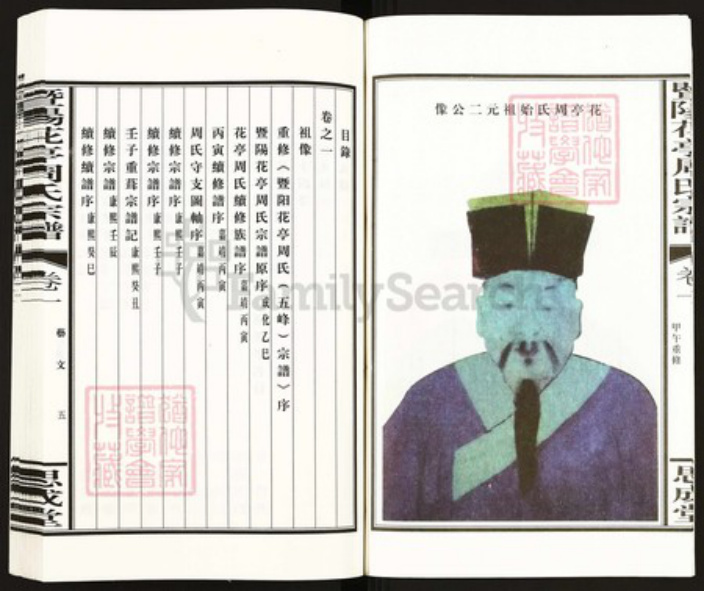 花亭周氏始祖元二公像
暨陽花亭周氏宗譜
卷一
甲午重修
思成堂
目錄
卷之一
祖像
重修《暨阳花亭周氏（五峰）宗譜》序
暨陽花亭周氏宗譜原序 成化乙巳
花亭周氏續修族譜序 嘉靖丙寅
丙寅續修譜序 嘉靖丙寅
周氏守支圖軸序 嘉靖丙寅
續修宗譜序 康熙壬子
續修譜序 康熙壬子
壬子重葺宗譜記 康熙癸丑
續修宗譜 康熙壬辰
續修續譜序 康熙癸巳
暨陽花亭周氏宗譜
卷一
藝文
五
思成堂
猶他家譜學會特藏
猶他家譜學會特藏
FamilySearch